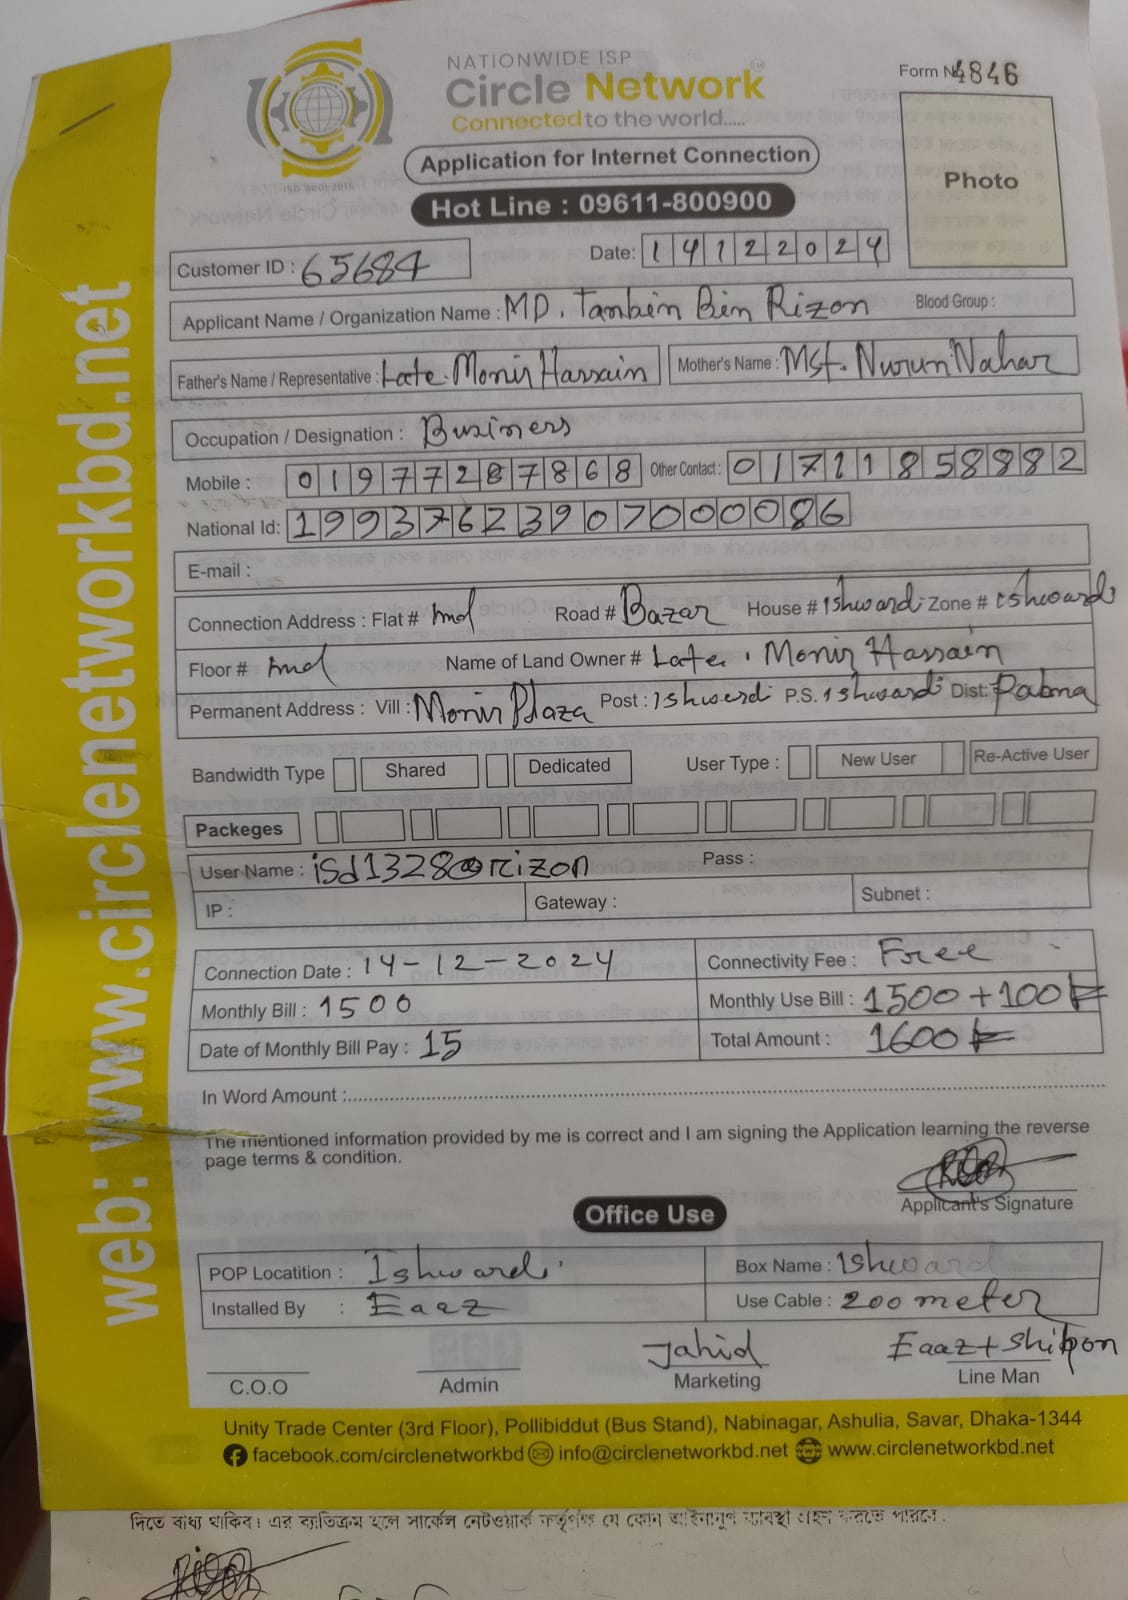 NATIONWIDE ISP
Circle Network
Connected to the world.....
ISO 9001:2015
Form No 4846
Application for Internet Connection
Photo
Hot Line : 09611-800900
Customer ID : 65684
Date: 14122024
Applicant Name / Organization Name : MD. Tanbin Bin Rizon Blood Group :
Father's Name / Representative : Late. Monir Hassain Mother's Name : Mst. Nurun Nahar
Occupation / Designation : Business
Mobile : 01977287868 Other Contact : 01711858882
National Id: 19937623907000086
E-mail :
Connection Address : Flat # 2nd Road # Bazar House # Ishwardi Zone # Ishwardi
Floor # 2nd Name of Land Owner # Late. Monir Hassain
Permanent Address : Vill : Monir Plaza Post : Ishwardi P.S. Ishwardi Dist: Pabna
Bandwidth Type Shared Dedicated User Type : New User Re-Active User
Packeges
User Name : isd1328@rizon Pass :
IP : Gateway : Subnet :
Connection Date : 14-12-2024 Connectivity Fee : Free
Monthly Bill : 1500 Monthly Use Bill : 1500+100
Date of Monthly Bill Pay : 15 Total Amount : 1600
In Word Amount :
The mentioned information provided by me is correct and I am signing the Application learning the reverse
page terms & condition.
Applicant's Signature
Office Use
POP Locatition : Ishwardi Box Name : Ishward
Installed By : Eaaz Use Cable : 200 meter
Jahid Eaaz + Shipon
C.O.O Admin Marketing Line Man
Unity Trade Center (3rd Floor), Pollibiddut (Bus Stand), Nabinagar, Ashulia, Savar, Dhaka-1344
facebook.com/circlenetworkbd info@circlenetworkbd.net www.circlenetworkbd.net
web: www.circlenetworkbd.net
দিতে বাধ্য থাকিব। এর ব্যতিক্রম হলে সার্কেল নেটওয়ার্ক কর্তৃপক্ষ যে কোন আইনানুগ ব্যবস্থা গ্রহন করতে পারবে।